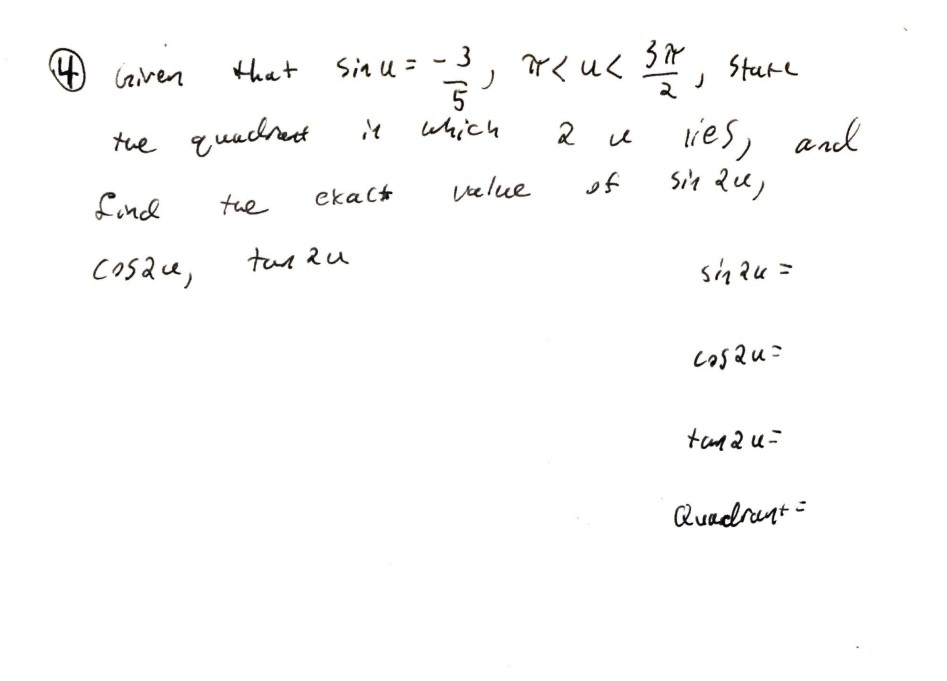 ④ Given that sin u = -3/5, π < u < 3π/2, state
the quadrant in which 2u lies, and
find the exact value of sin 2u,
cos 2u, tan 2u
sin 2u =
cos 2u =
tan 2u =
Quadrant =